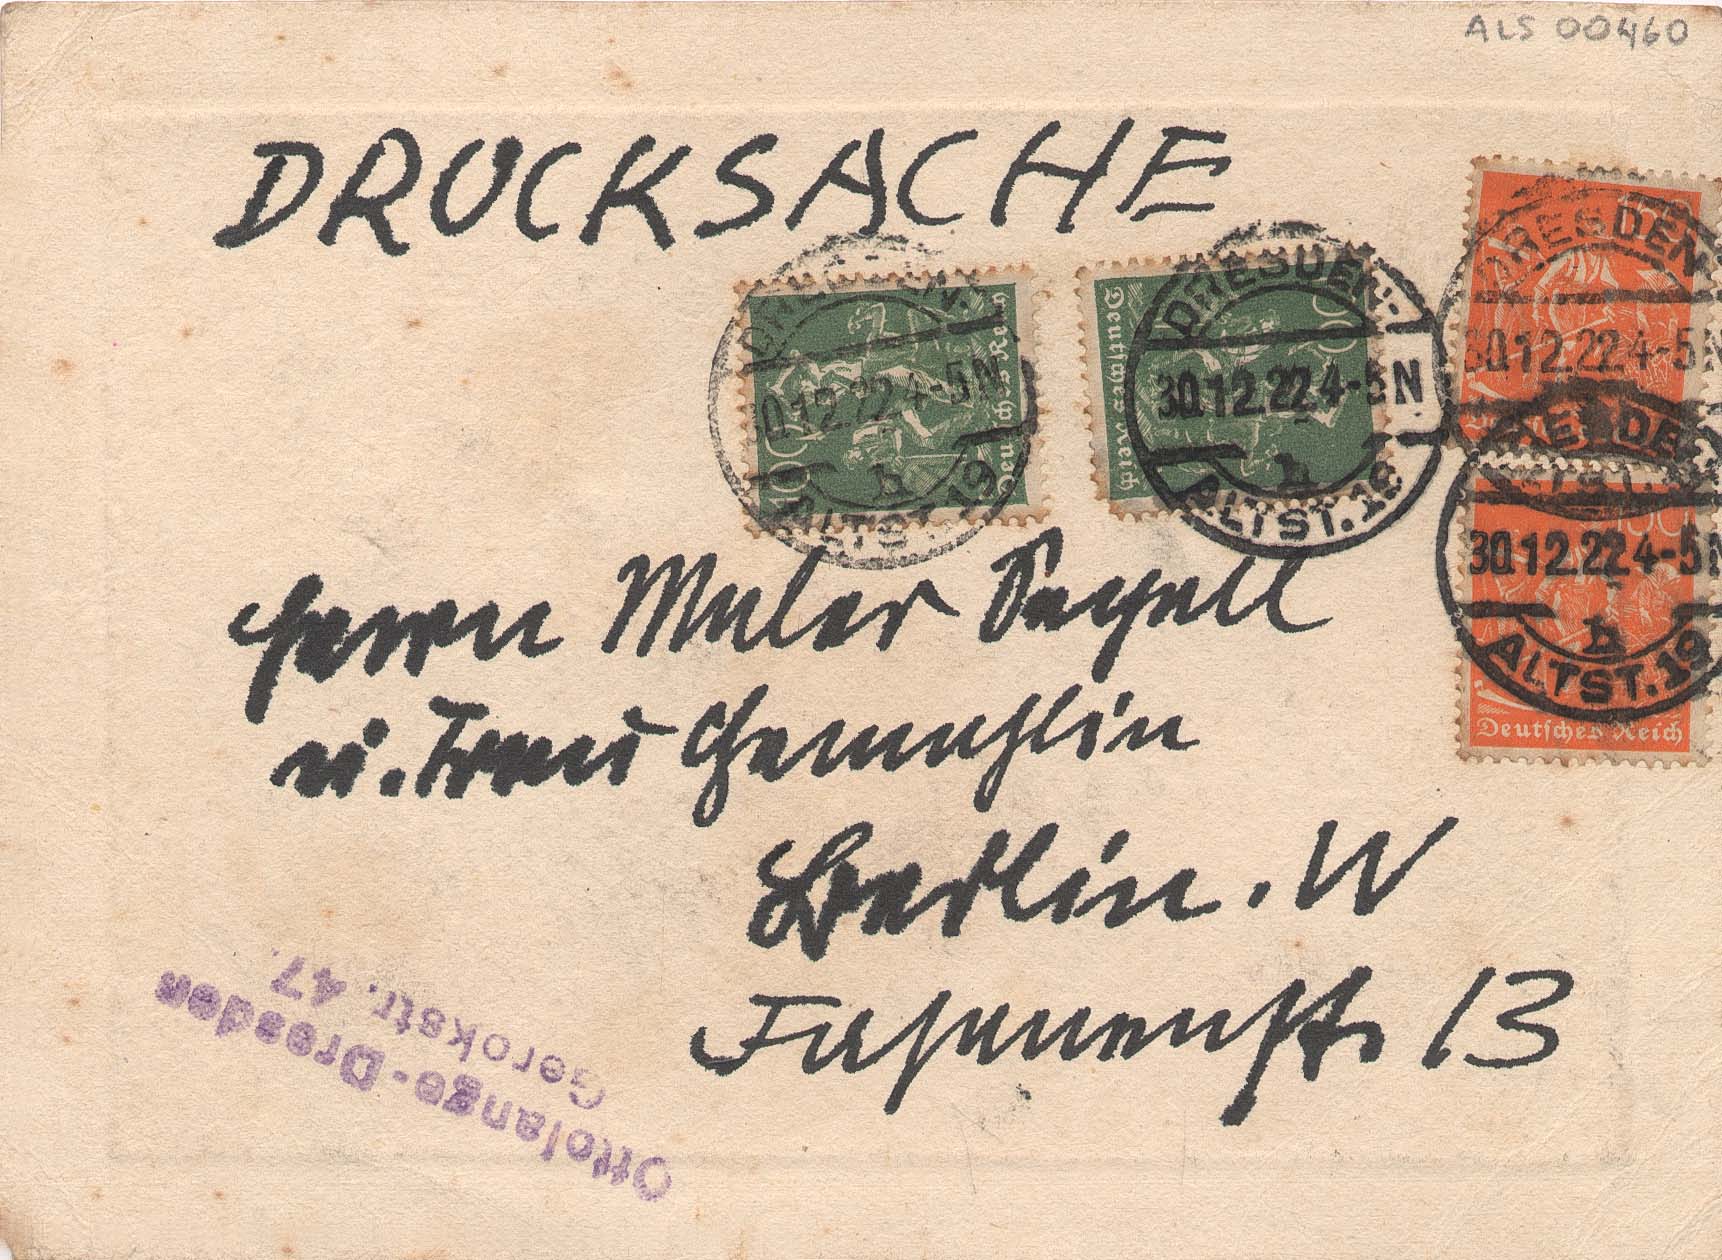 ALS 00460
DRUCKSACHE
DRESDEN-
30.12.22.4-5N
h
ALTST.19
100
Deutsches Reich
DRESDEN-
30.12.22.4-5N
h
ALTST.19
Deutsches Reich
DRESDEN
30.12.22.4-5N
DRESDEN
30.12.22.4-5N
h
ALTST.19
Deutsches Reich
Herrn Maler Segall
u. Frau Gemahlin
Berlin. W
Fasanenstr. 13
Ottolange-Dresden
Gerokstr. 47.